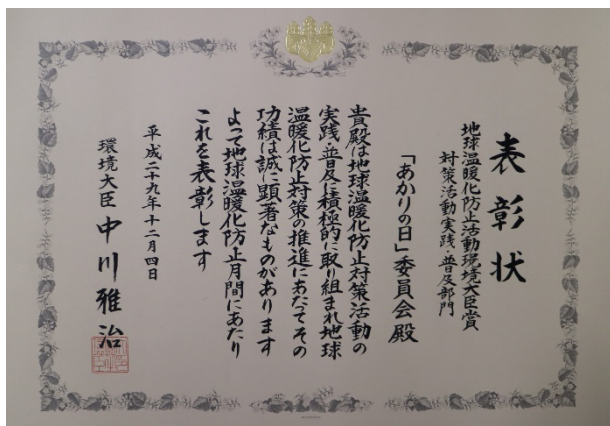 表彰状
地球温暖化防止活動環境大臣賞
対策活動実践・普及部門
「あかりの日」委員会殿
貴殿は地球温暖化防止対策活動の
実践・普及に積極的に取り組まれ地球
温暖化防止対策の推進にあたてその
功績は誠に顕著なものがあります
よって地球温暖化防止月間にあたり
これを表彰します
平成二十九年十二月四日
環境大臣 中川雅治